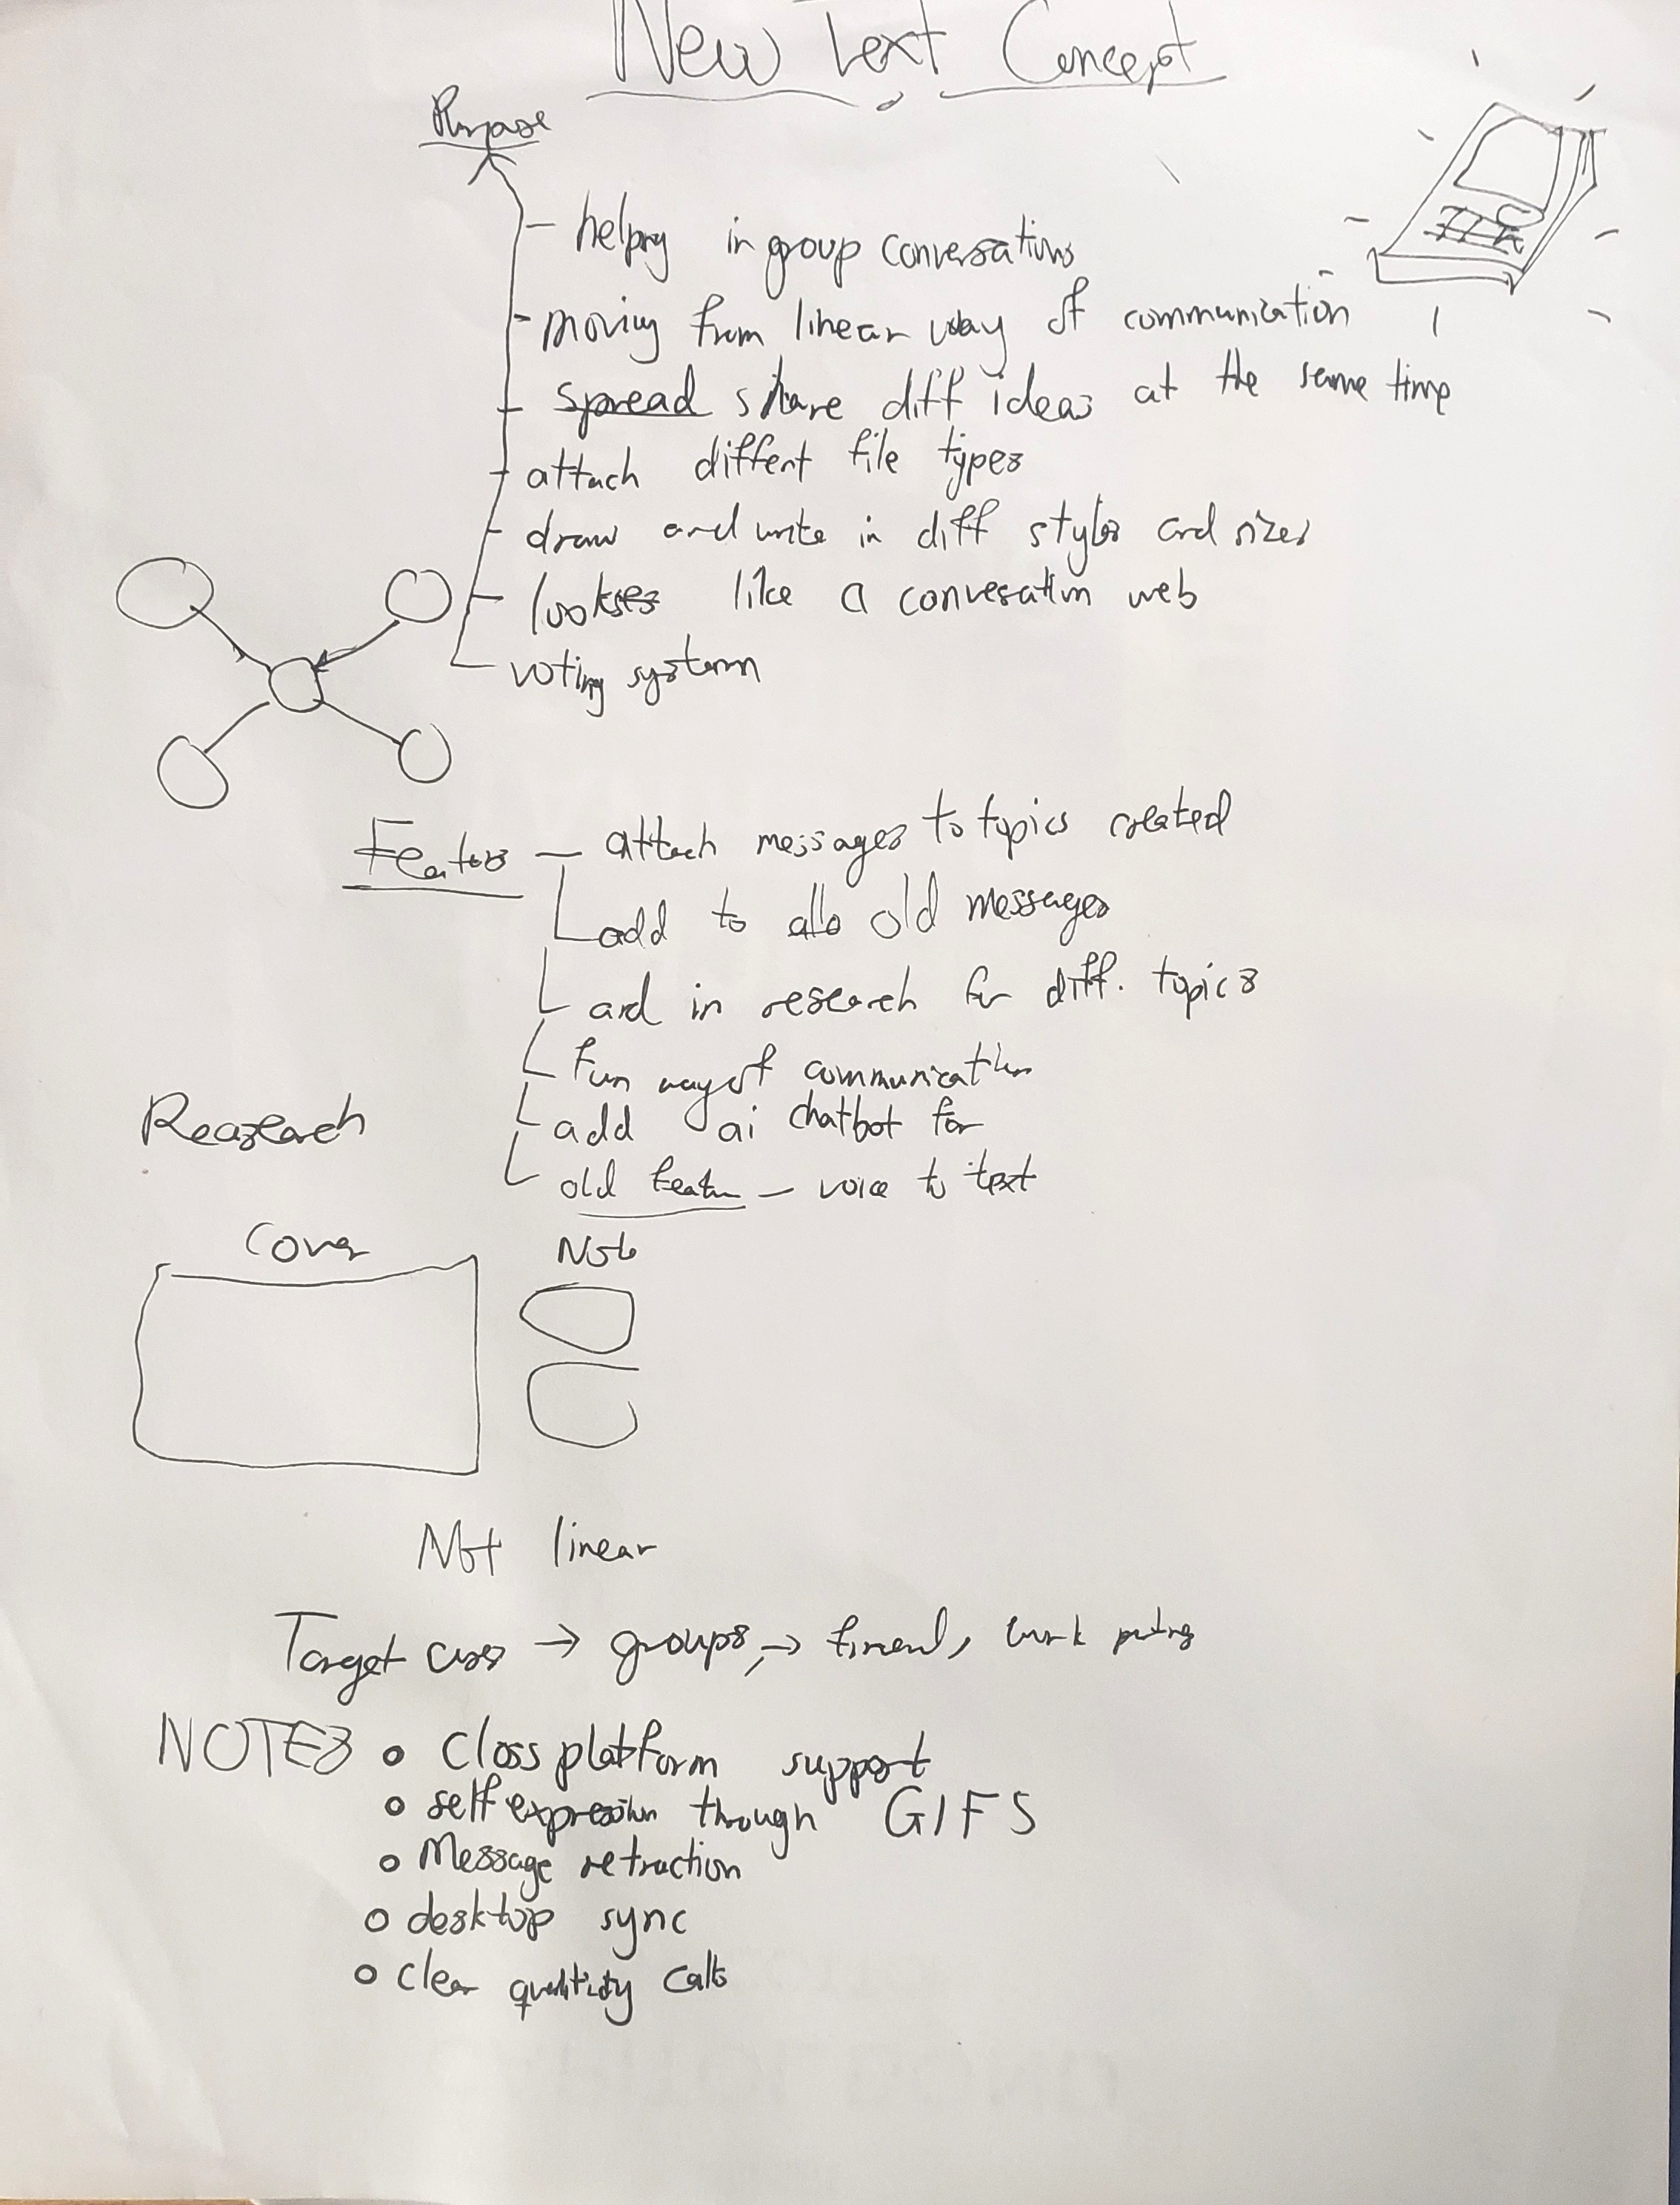 New Text Concept
Purpose
- helping in group conversations
- moving from linear way of communication
- spread share diff ideas at the same time
- attach diffent file types
- draw and write in diff styles and sizes
- lookses like a conversation web
- voting system
Features - attach messages to topics created
add to old messages
aid in research for diff. topics
fun way of communication
Reasearch
add ai chatbot for
old featu - voice to text
Cover
Note
Not linear
Target → groups, →
NOTES
• Closs platform support
• self expression through GIFS
• Message retraction
• desktop sync
• clear calls